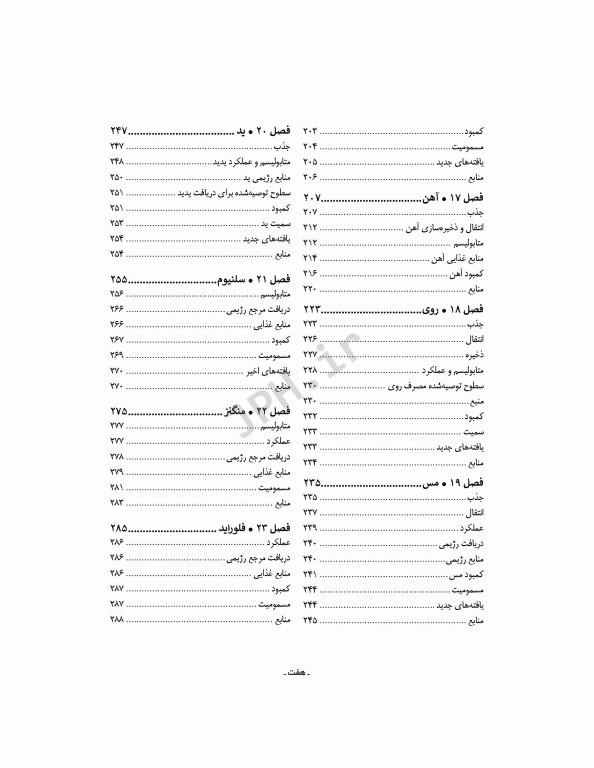 کمبود ........ ۲۰۳
مسمومیت ........ ۲۰۴
یافته‌های جدید ........ ۲۰۵
منابع ........ ۲۰۶
فصل ۱۷ • آهن ........ ۲۰۷
جذب ........ ۲۰۷
انتقال و ذخیره‌سازی آهن ........ ۲۱۲
متابولیسم ........ ۲۱۲
منابع غذایی آهن ........ ۲۱۴
کمبود آهن ........ ۲۱۶
منابع ........ ۲۲۰
فصل ۱۸ • روی ........ ۲۲۳
جذب ........ ۲۲۳
انتقال ........ ۲۲۶
ذخیره ........ ۲۲۷
متابولیسم و عملکرد ........ ۲۲۸
سطوح توصیه‌شده مصرف روی ........ ۲۳۰
منبع ........ ۲۳۰
کمبود ........ ۲۳۲
سمیت ........ ۲۳۳
یافته‌های جدید ........ ۲۳۳
منابع ........ ۲۳۴
فصل ۱۹ • مس ........ ۲۳۵
جذب ........ ۲۳۵
انتقال ........ ۲۳۷
عملکرد ........ ۲۳۹
دریافت رژیمی ........ ۲۴۰
منابع رژیمی ........ ۲۴۰
کمبود مس ........ ۲۴۱
مسمومیت ........ ۲۴۴
یافته‌های جدید ........ ۲۴۴
منابع ........ ۲۴۵
فصل ۲۰ • ید ........ ۲۴۷
جذب ........ ۲۴۷
متابولیسم و عملکرد یدید ........ ۲۴۸
منابع رژیمی ید ........ ۲۵۰
سطوح توصیه‌شده برای دریافت یدید ........ ۲۵۱
کمبود ........ ۲۵۱
سمیت ید ........ ۲۵۳
یافته‌های جدید ........ ۲۵۴
منابع ........ ۲۵۴
فصل ۲۱ • سلنیوم ........ ۲۵۵
متابولیسم ........ ۲۵۶
دریافت مرجع رژیمی ........ ۲۶۶
منابع غذایی ........ ۲۶۶
کمبود ........ ۲۶۷
مسمومیت ........ ۲۶۹
یافته‌های اخیر ........ ۲۷۰
منابع ........ ۲۷۰
فصل ۲۲ • منگنز ........ ۲۷۵
متابولیسم ........ ۲۷۷
عملکرد ........ ۲۷۷
دریافت مرجع رژیمی ........ ۲۷۸
منابع غذایی ........ ۲۷۹
مسمومیت ........ ۲۸۱
منابع ........ ۲۸۳
فصل ۲۳ • فلوراید ........ ۲۸۵
عملکرد ........ ۲۸۶
دریافت مرجع رژیمی ........ ۲۸۶
منابع غذایی ........ ۲۸۶
کمبود ........ ۲۸۷
مسمومیت ........ ۲۸۷
منابع ........ ۲۸۸
ـ هفت ـ
JPH.ir